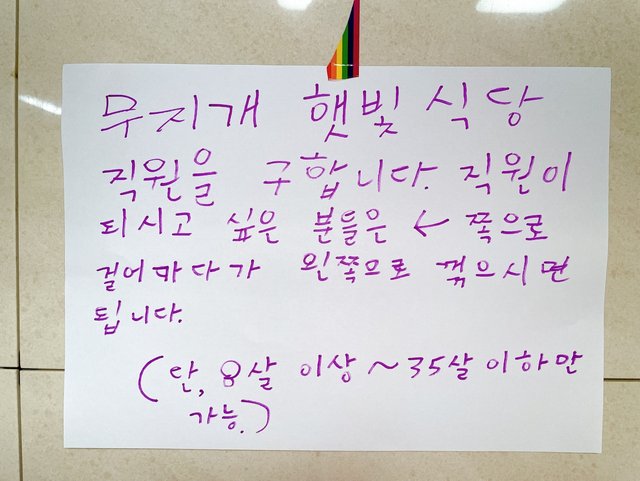 무지개 햇빛 식당
직원을 구합니다. 직원이
되시고 싶은 분들은 ← 쪽으로
걸어가다가 왼쪽으로 꺾으시면
됩니다.
(단, 8살 이상 ~ 35살 이하만
가능.)